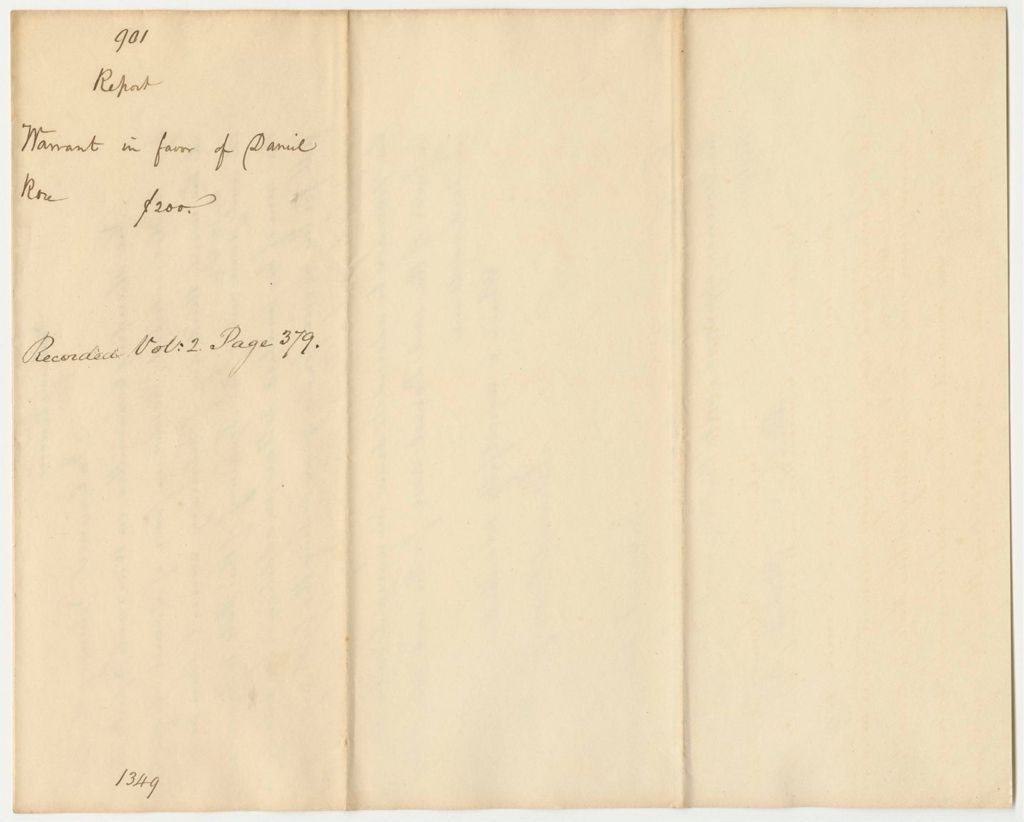 901
Report
Warrant in favor of Daniel
Rose $200.
Recorded Vol: 2. Page 379.
1349